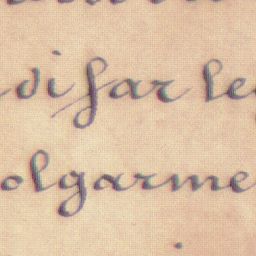 di far le
olgarme